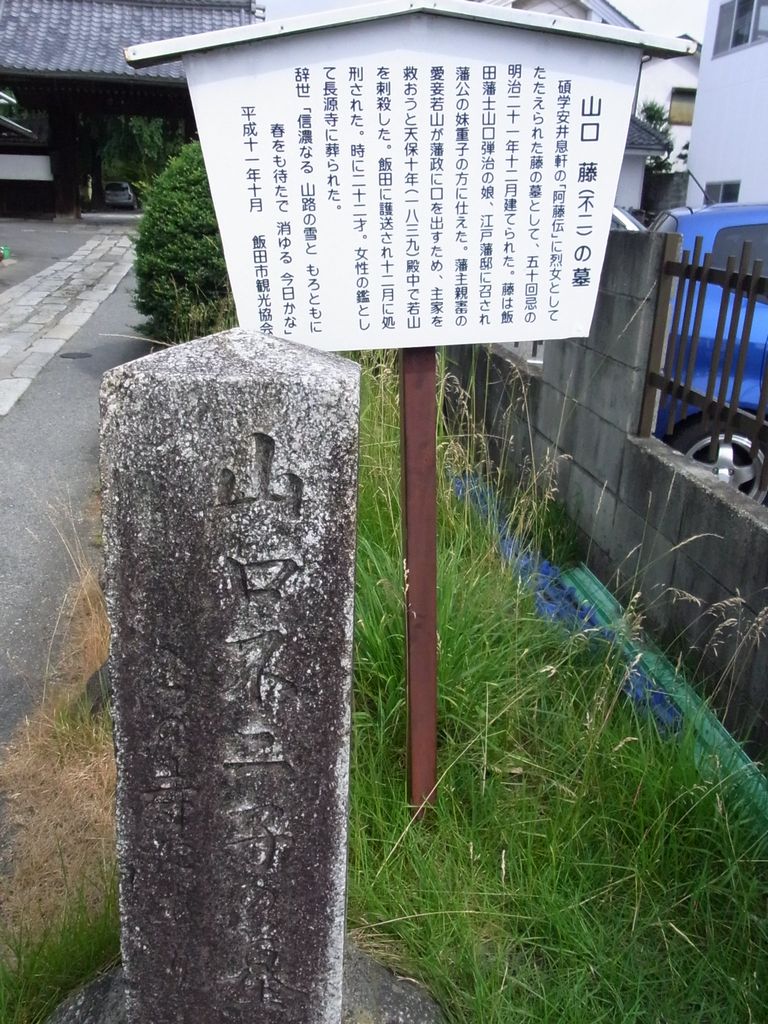 山口　藤(不二)の墓
碩学安井息軒の「阿藤伝」に烈女として
たたえられた藤の墓として、五十回忌の
明治二十一年十二月建てられた。藤は飯
田藩士山口弾治の娘、江戸藩邸に召され
藩公の妹重子の方に仕えた。藩主親寚の
愛妾若山が藩政に口を出すため、主家を
救おうと天保十年(一八三九)殿中で若山
を刺殺した。飯田に護送され十二月に処
刑された。時に二十二才。女性の鑑とし
て長源寺に葬られた。
辞世「信濃なる 山路の雪と もろともに
春をも待たで 消ゆる 今日かな」
平成十一年十月　飯田市観光協会
山口不二子の墓